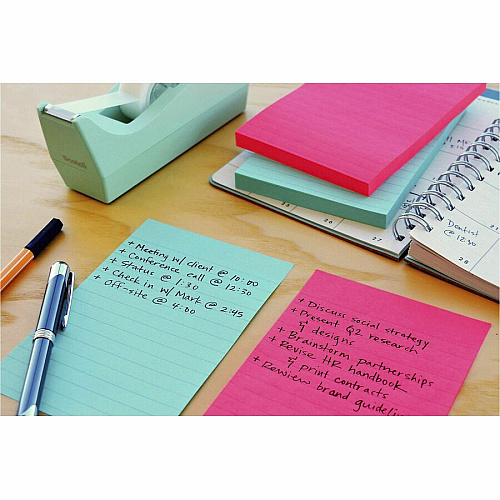 Call Me
Dentist
@ 12:30
25
27
28
+ Meeting w/ client @ 10:00
+ Conference call @ 12:30
+ Status @ 1:30
+ Check in w/ Mark @ 2:45
+ Off-site @ 4:00
+ Discuss social strategy
+ Present Q2 research
& designs
+ Brainstorm partnerships
+ Revise HR handbook
& print contracts
+ Review brand guidelin